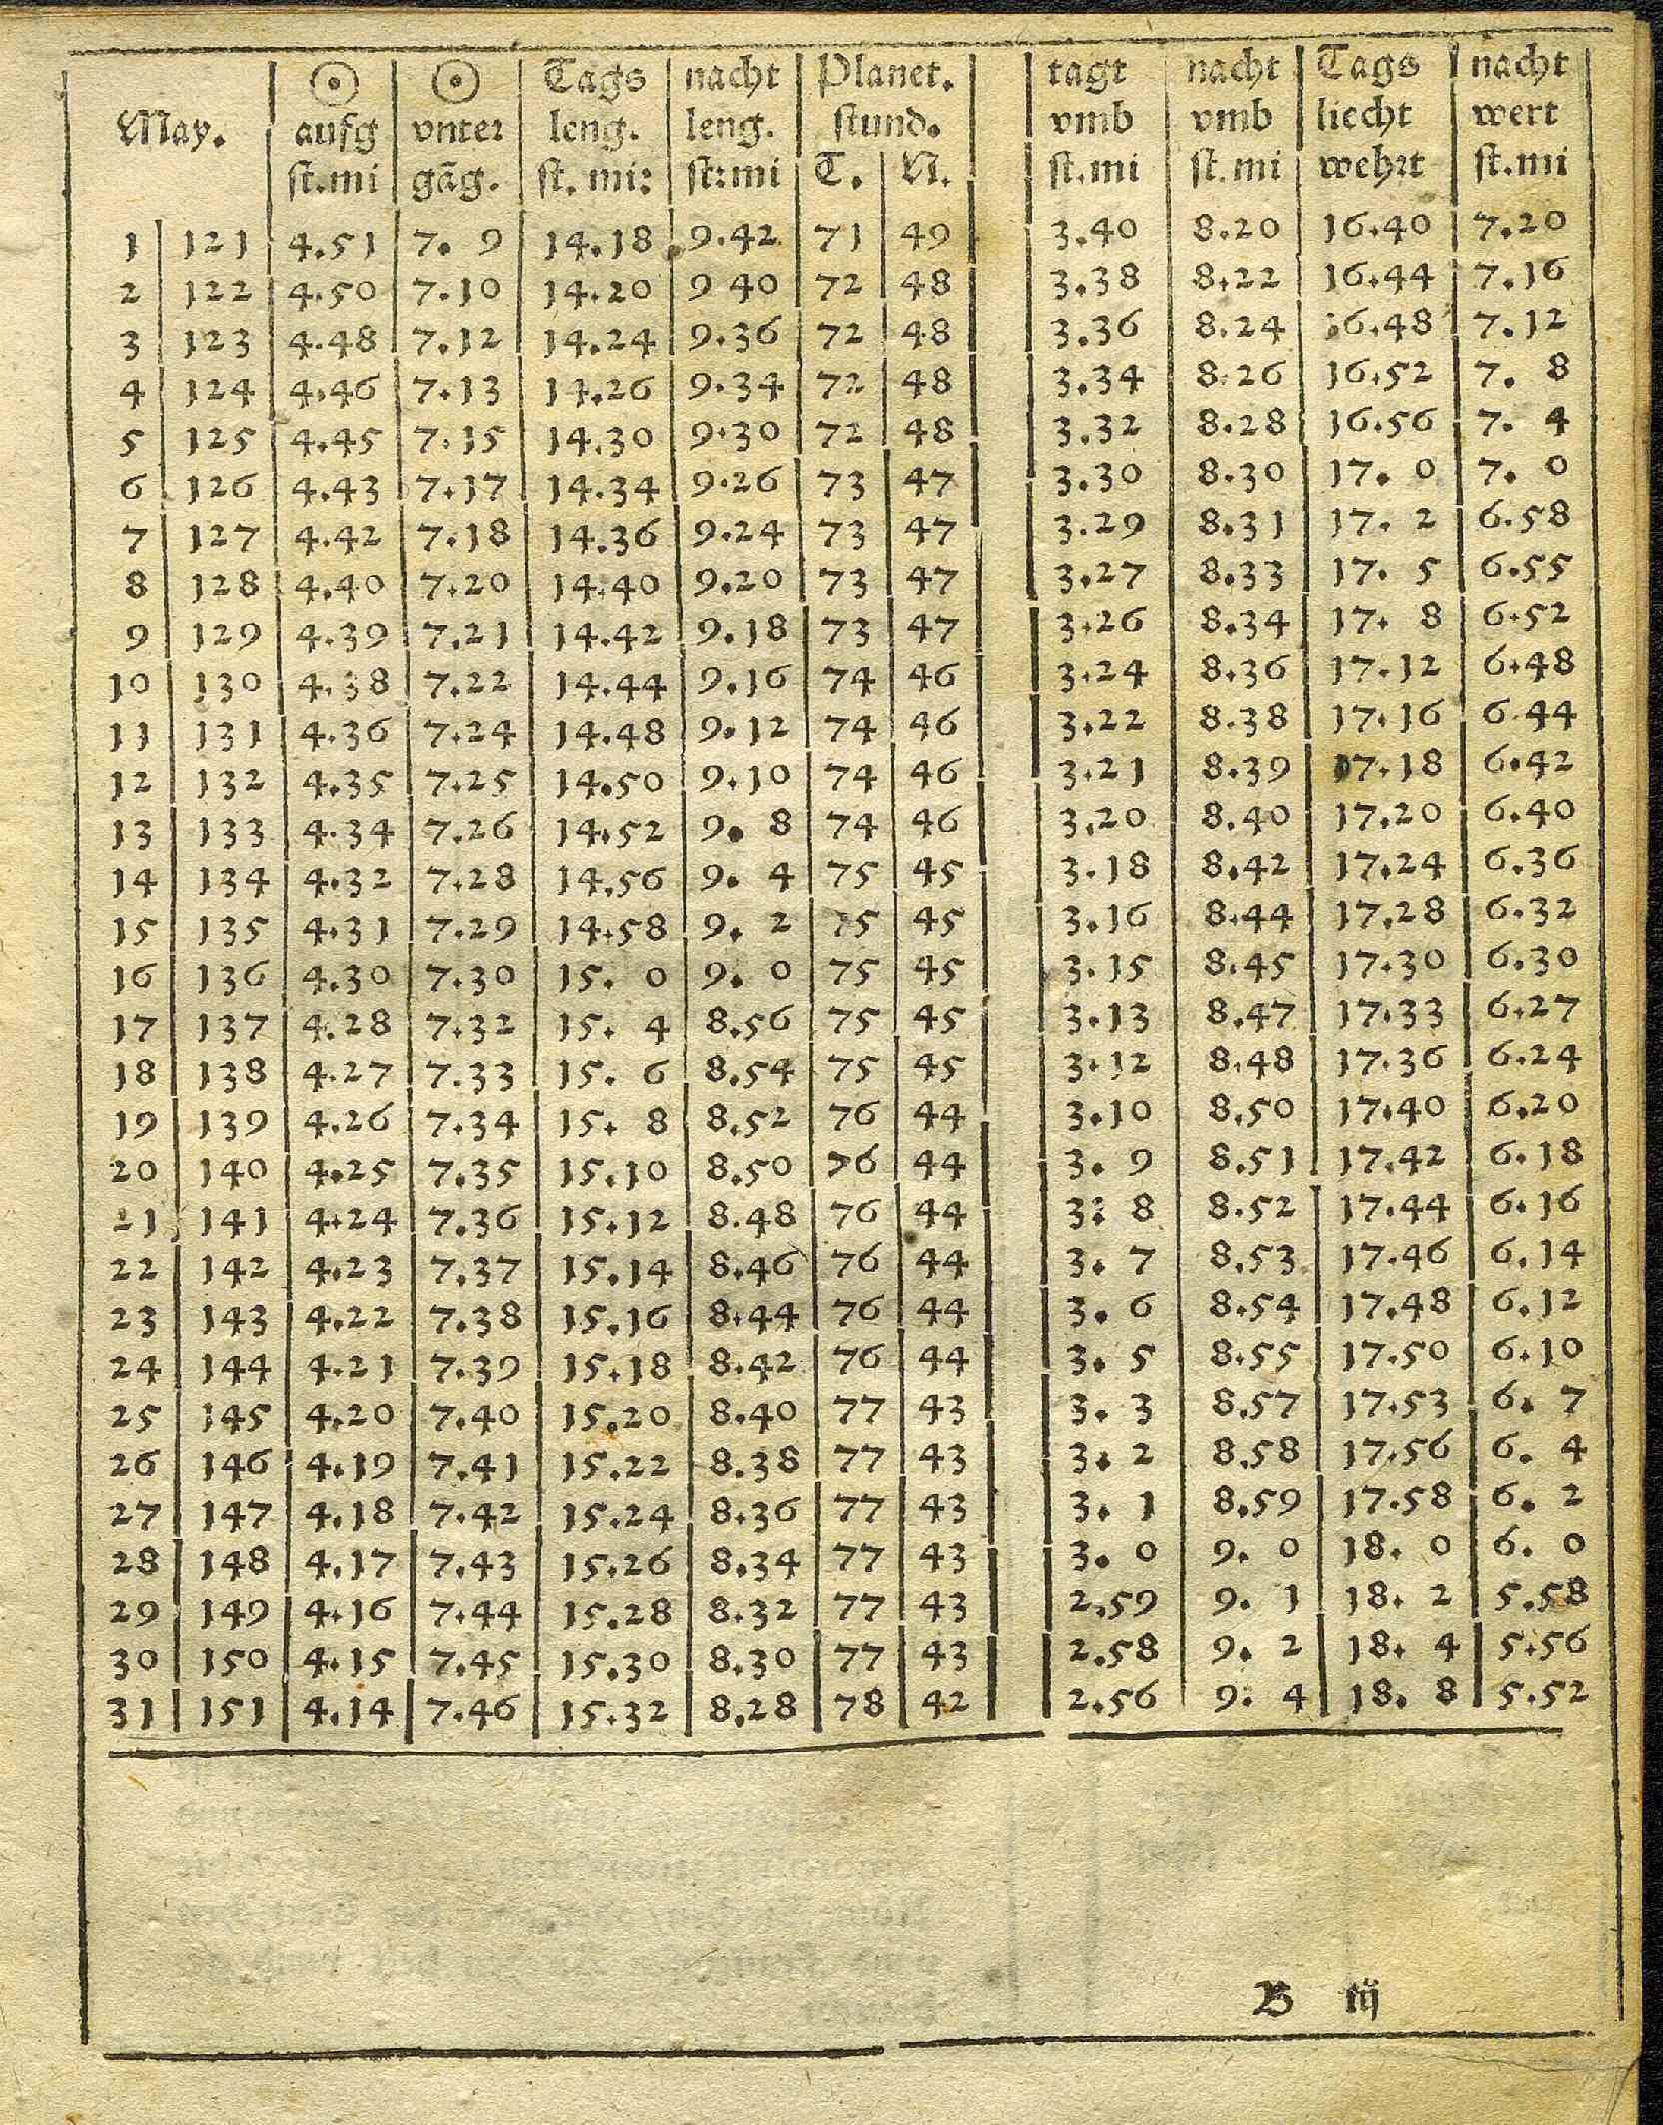 ☉ ☉ Tags nacht Planet. tagt nacht Tags nacht
May. aufg vnter leng. leng. stund. vmb vmb liecht wert
st.mi gãg. st. mi: st:mi T. N. st.mi st.mi wehrt st.mi
1 121 4.51 7. 9 14.18 9.42 71 49 3.40 8.20 16.40 7.20
2 122 4.50 7.10 14.20 9 40 72 48 3.38 8.22 16.44 7.16
3 123 4.48 7.12 14.24 9.36 72 48 3.36 8.24 16.48 7.12
4 124 4.46 7.13 14.26 9.34 72 48 3.34 8.26 16.52 7. 8
5 125 4.45 7.15 14.30 9.30 72 48 3.32 8.28 16.56 7. 4
6 126 4.43 7.17 14.34 9.26 73 47 3.30 8.30 17. 0 7. 0
7 127 4.42 7.18 14.36 9.24 73 47 3.29 8.31 17. 2 6.58
8 128 4.40 7.20 14.40 9.20 73 47 3.27 8.33 17. 5 6.55
9 129 4.39 7.21 14.42 9.18 73 47 3.26 8.34 17. 8 6.52
10 130 4.38 7.22 14.44 9.16 74 46 3.24 8.36 17.12 6.48
11 131 4.36 7.24 14.48 9.12 74 46 3.22 8.38 17.16 6.44
12 132 4.35 7.25 14.50 9.10 74 46 3.21 8.39 17.18 6.42
13 133 4.34 7.26 14.52 9. 8 74 46 3.20 8.40 17.20 6.40
14 134 4.32 7.28 14.56 9. 4 75 45 3.18 8.42 17.24 6.36
15 135 4.31 7.29 14.58 9. 2 75 45 3.16 8.44 17.28 6.32
16 136 4.30 7.30 15. 0 9. 0 75 45 3.15 8.45 17.30 6.30
17 137 4.28 7.32 15. 4 8.56 75 45 3.13 8.47 17.33 6.27
18 138 4.27 7.33 15. 6 8.54 75 45 3.12 8.48 17.36 6.24
19 139 4.26 7.34 15. 8 8.52 76 44 3.10 8.50 17.40 6.20
20 140 4.25 7.35 15.10 8.50 76 44 3. 9 8.51 17.42 6.18
21 141 4.24 7.36 15.12 8.48 76 44 3: 8 8.52 17.44 6.16
22 142 4.23 7.37 15.14 8.46 76 44 3. 7 8.53 17.46 6.14
23 143 4.22 7.38 15.16 8.44 76 44 3. 6 8.54 17.48 6.12
24 144 4.21 7.39 15.18 8.42 76 44 3. 5 8.55 17.50 6.10
25 145 4.20 7.40 15.20 8.40 77 43 3. 3 8.57 17.53 6. 7
26 146 4.19 7.41 15.22 8.38 77 43 3. 2 8.58 17.56 6. 4
27 147 4.18 7.42 15.24 8.36 77 43 3. 1 8.59 17.58 6. 2
28 148 4.17 7.43 15.26 8.34 77 43 3. 0 9. 0 18. 0 6. 0
29 149 4.16 7.44 15.28 8.32 77 43 2.59 9. 1 18. 2 5.58
30 150 4.15 7.45 15.30 8.30 77 43 2.58 9. 2 18. 4 5.56
31 151 4.14 7.46 15.32 8.28 78 42 2.56 9. 4 18. 8 5.52
B iij